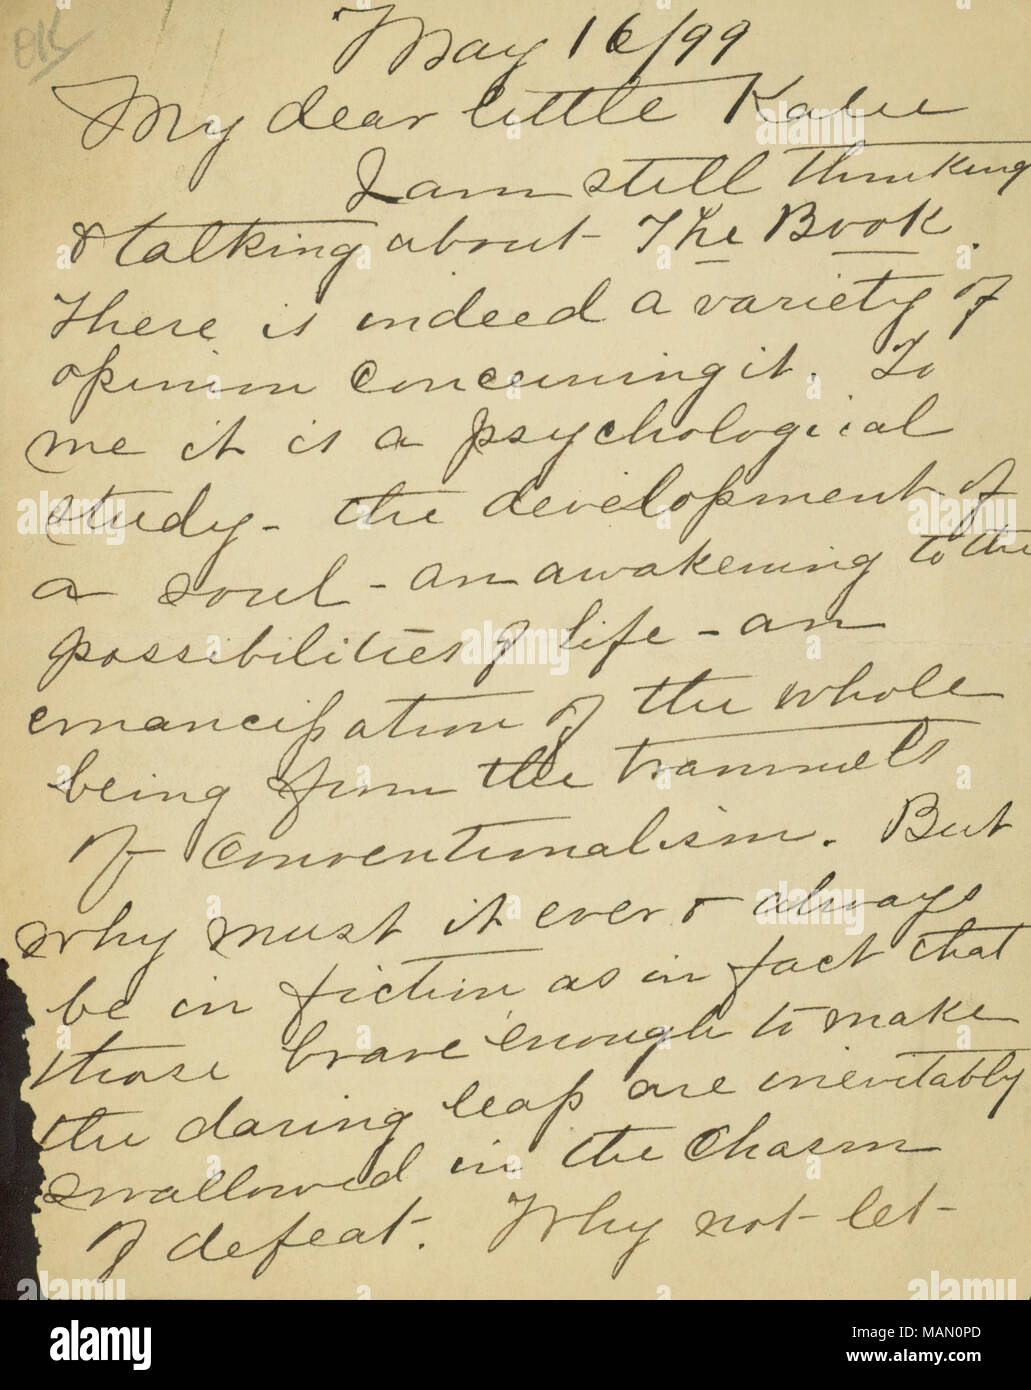 OK
May 16/99
My dear little Katie
I am still thinking
& talking about The Book.
There is indeed a variety of
opinion concerning it. To
me it is a psychological
study - the development of
a soul - an awakening to the
possibilities of life - an
emancipation of the whole
being from the trammels
of conventionalism. But
why must it ever & always
be in fiction as in fact that
those brave enough to make
the daring leap are inevitably
swallowed in the chasm
of defeat. Why not let
alamy
Image ID: MAN0PD
www.alamy.com